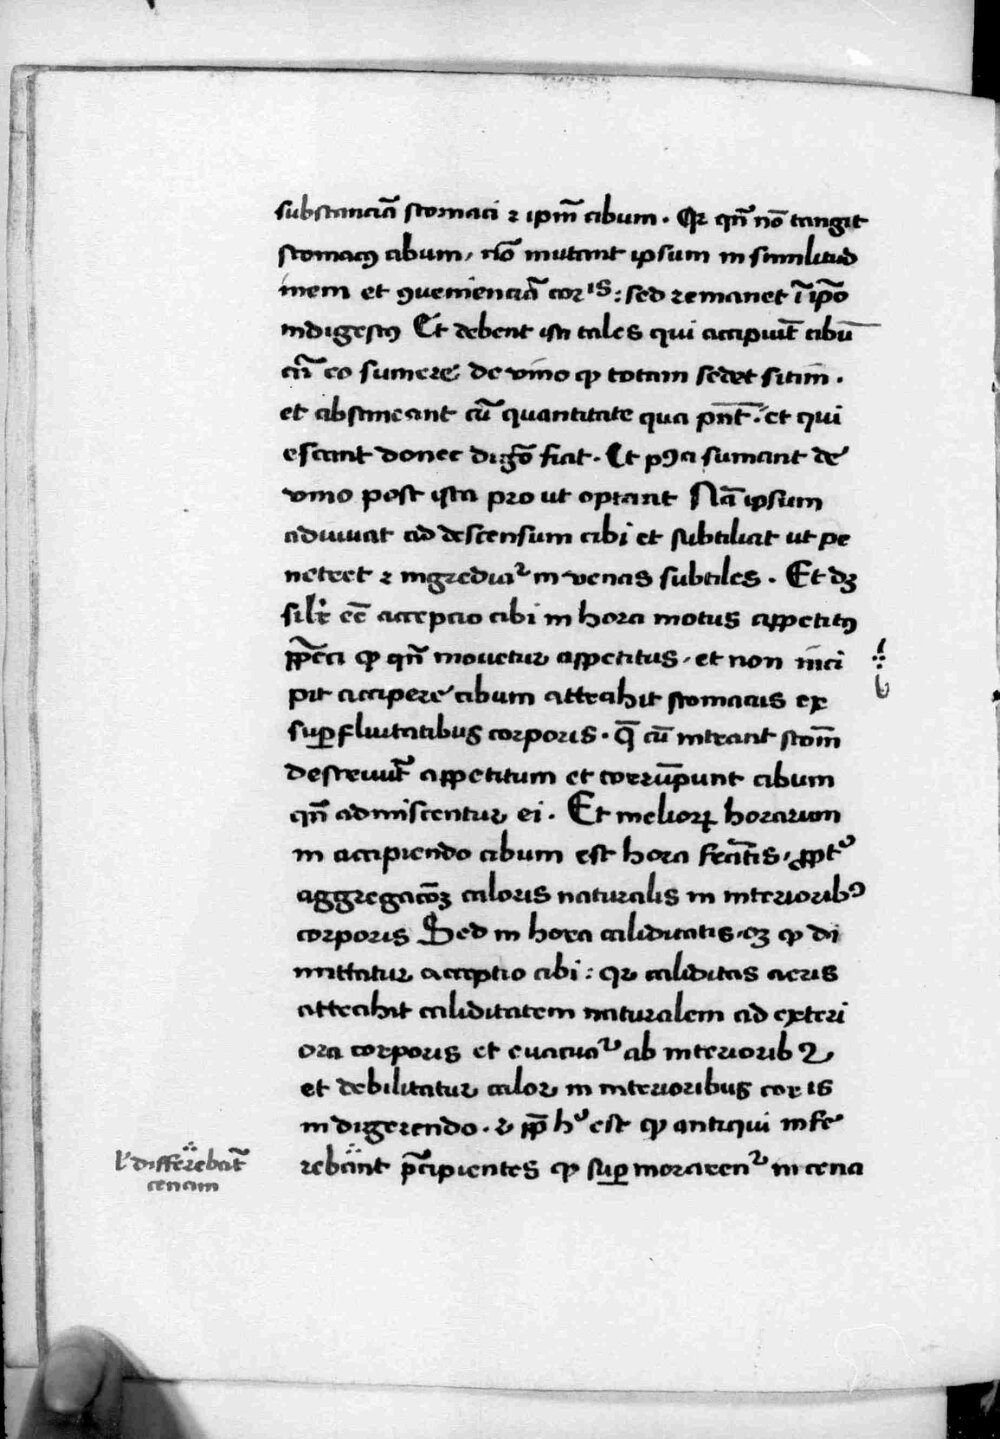 substanciā stomaci ⁊ ipm̄ cibum . Qr qn̄ nō tangit
stomacꝰ cibum, nō mutant ipsum in similitud
inem et ꝯuenienciā corꝭ : sed remanet ī ip̄o
indigestꝰ Et debent isti tales qui accipiūt cibū
cū eo sumere de vino ꝙ totam sedet sitim .
et abstineant cū quantitate qua pn̄t . et qui
escant donec digō fiat . Et pꝯa sumant de
vino post ista pro ut optant Nā ipsum
adiuuat ad descensum cibi et subtiliat ut pe
netret ⁊ ingrediat᷑ in venas subtiles . Et dꝫ
silr̄ eē accepcio cibi in hora motus appetitꝰ
ꝙ qn̄ mouetur appetitus . et non inci
pit accipere cibum attrahit stomacus ex
suꝑfluitatibus corporis . q̄ cū intrant stom̄
destruūt appetitum et corrūpunt cibum
qn̄ admiscentur ei . Et melioꝝ horarum
in accipiendo cibum est hora , ꝓpt᷑
aggregacōꝫ caloris naturalis in interioribꝰ
corporis Sed in hora caliditatis . oꝫ ꝙ di
mittatur acceptio cibi : qr caliditas aeris
attrahit caliditatem naturalem ad exteri
ora corporis et euacuat᷑ ab interioribꝰ
et debilitatur calor in interioribus corꝭ
in digerendo . ⁊ ꝓp̄ h᷑ est ꝙ antiqui infe
rebant p̄cipientes ꝙ suꝑ morarent᷑ in cena
l' differebāt
cenam